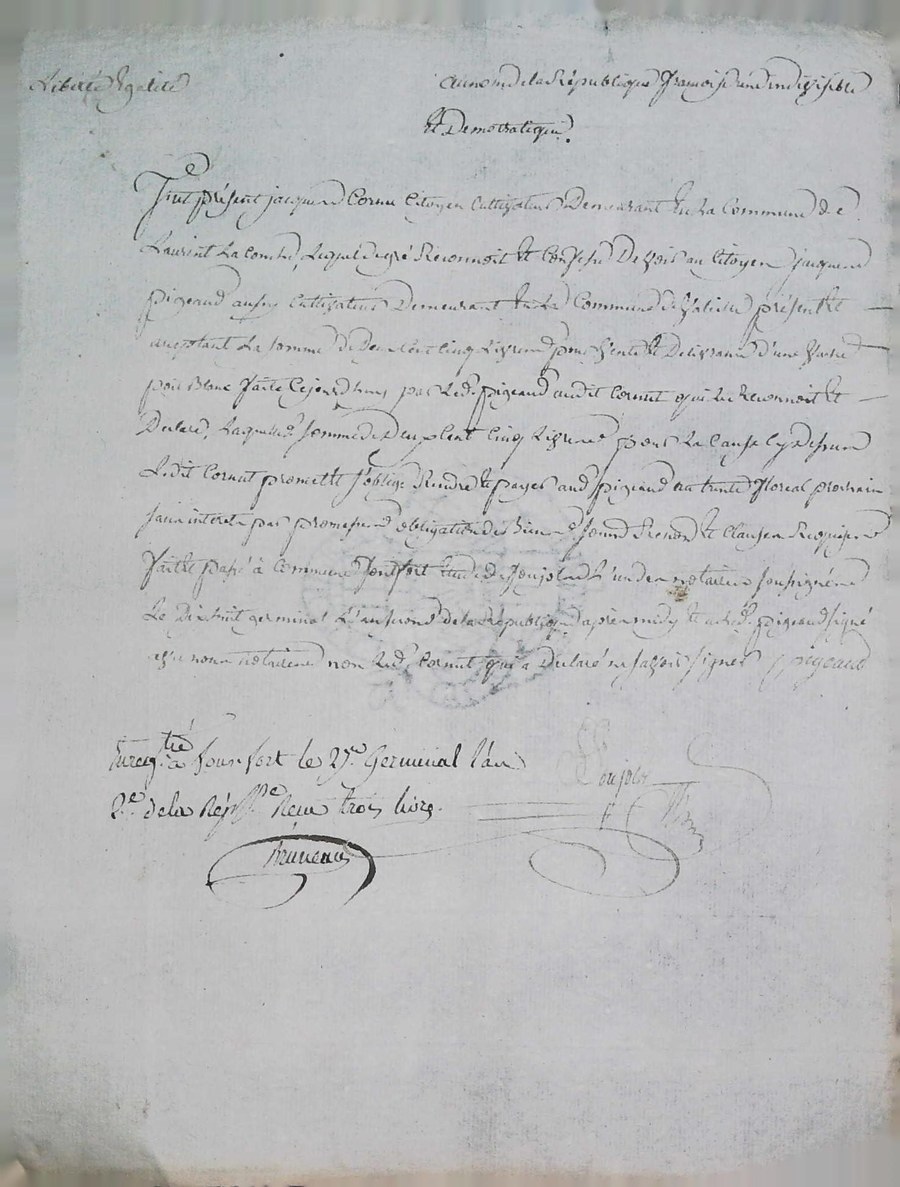 Liberté Egalité
au nom de la République francoise une indivisible
Et Democratique.
Fut présent jacques Cornu Citoyen Cultivateur demeurant En La Commune de
Laurent La Combe, Lequel de gré Reconnoit Et Confesse Devoir au Citoyen jacques
pigeaud aussy Cultivateur Demeurant En La Commune de présent Et
acceptant La somme de Deux Cent Cinq Livres pour Vente Et Delivrance d'une Vache
poil Blanc faite Cejourdhuy par Led. pigeaud audit Cornut qui Le Reconnoit Et
Declare, Laquelle somme de Deux Cent Cinq Livres pour La Cause Cy Dessus
Ledit Cornut promet Et s'oblige Rendre Et payer aud. pigeaud au trente floreal prochain
sans interets par promesse obligation des Biens Et Clauses Requises
faite Et passé à Commune fontfort Etude de poujol L'un des notaires soussignés
Le Dix huit germinal L'an second de la République après midy Et a Led. pigeaud signé
avec nous notaires non Led. Cornut qui a Declaré ne sçavoir signer pigeaud
Enregtré à fonsfort le 27e. Germinal l'an
2e. de la Répque Reçu trois livres.
Bruneau
Poujol